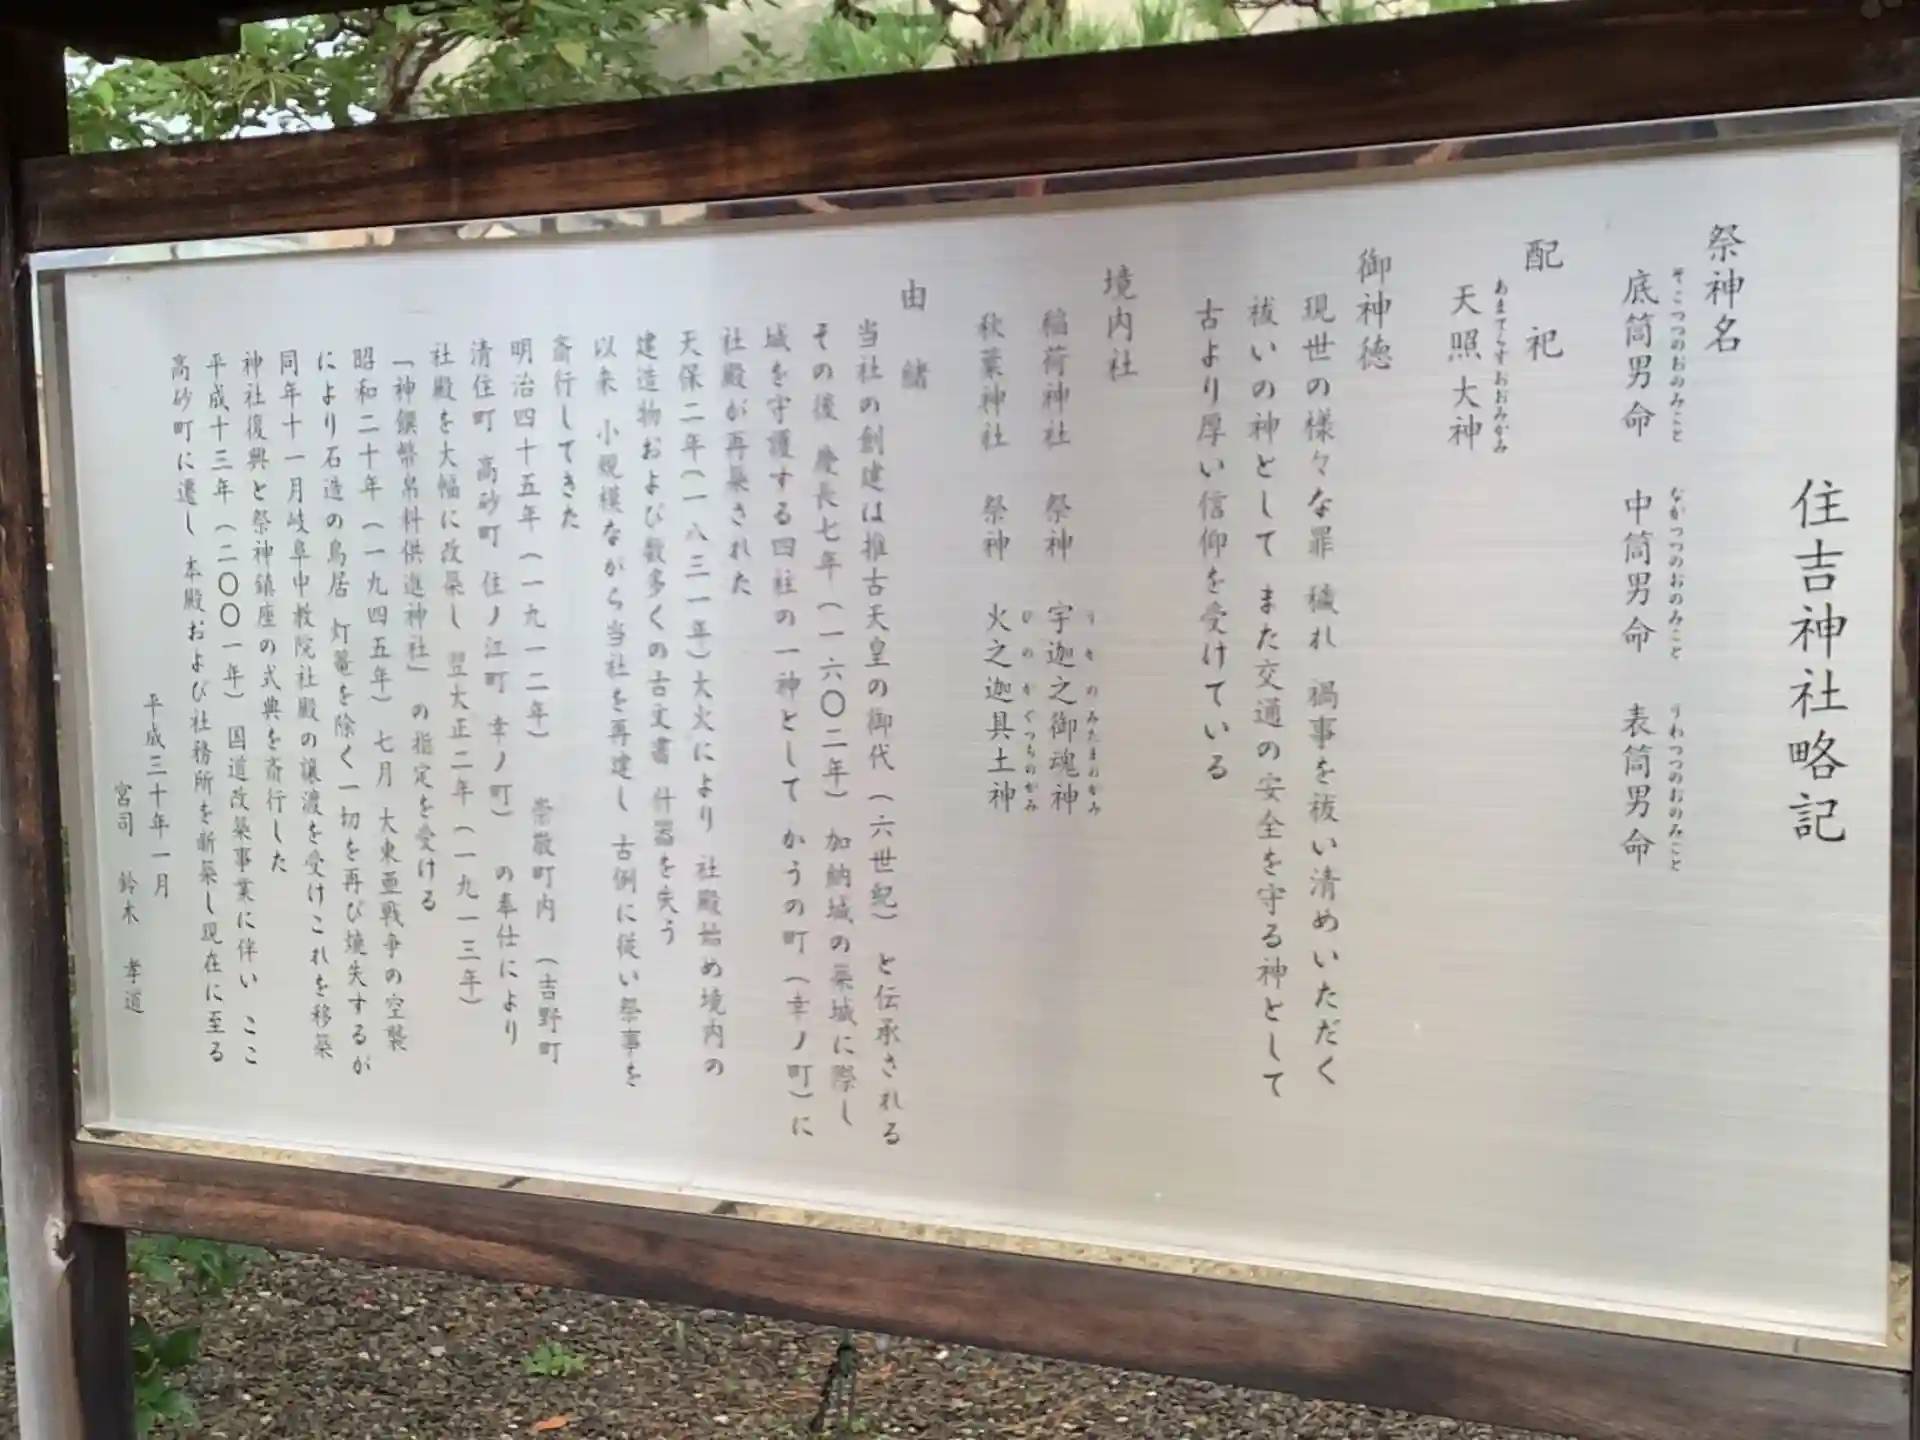 住吉神社略記
祭神名
底筒男命 中筒男命 表筒男命
そこつつのおのみこと なかつつのおのみこと うわつつのおのみこと
配祀
天照大神
あまてらすおおみかみ
御神徳
現世の様々な罪 穢れ 禍事を祓い清めいただく
祓いの神として また交通の安全を守る神として
古より厚い信仰を受けている
境内社
稲荷神社 祭神 宇迦之御魂神
うかのみたまのかみ
秋葉神社 祭神 火之迦具土神
ひのかぐつちのかみ
由緒
当社の創建は推古天皇の御代(六世紀)と伝承される
その後 慶長七年(一六〇二年) 加納城の築城に際し
城を守護する四社の一神として かうの町(幸ノ町)に
社殿が再築された
天保二年(一八三一年)大火により 社殿始め境内の
建造物および数多くの古文書 什器を失う
以来 小規模ながら当社を再建し 古例に従い祭事を
斎行してきた
明治四十五年(一九一二年) 崇敬町内(吉野町
清住町 高砂町 住ノ江町 幸ノ町)の奉仕により
社殿を大幅に改築し 翌大正二年(一九一三年)
「神饌幣帛料供進神社」の指定を受ける
昭和二十年(一九四五年)七月 大東亜戦争の空襲
により石造の鳥居 灯篭を除く一切を再び焼失するが
同年十一月岐阜中教院社殿の譲渡を受けこれを移築
神社復興と祭神鎮座の式典を斎行した
平成十三年(二〇〇一年)国道改築事業に伴い ここ
高砂町に遷し 本殿および社務所を新築し現在に至る
平成三十年一月
宮司 鈴木 孝道